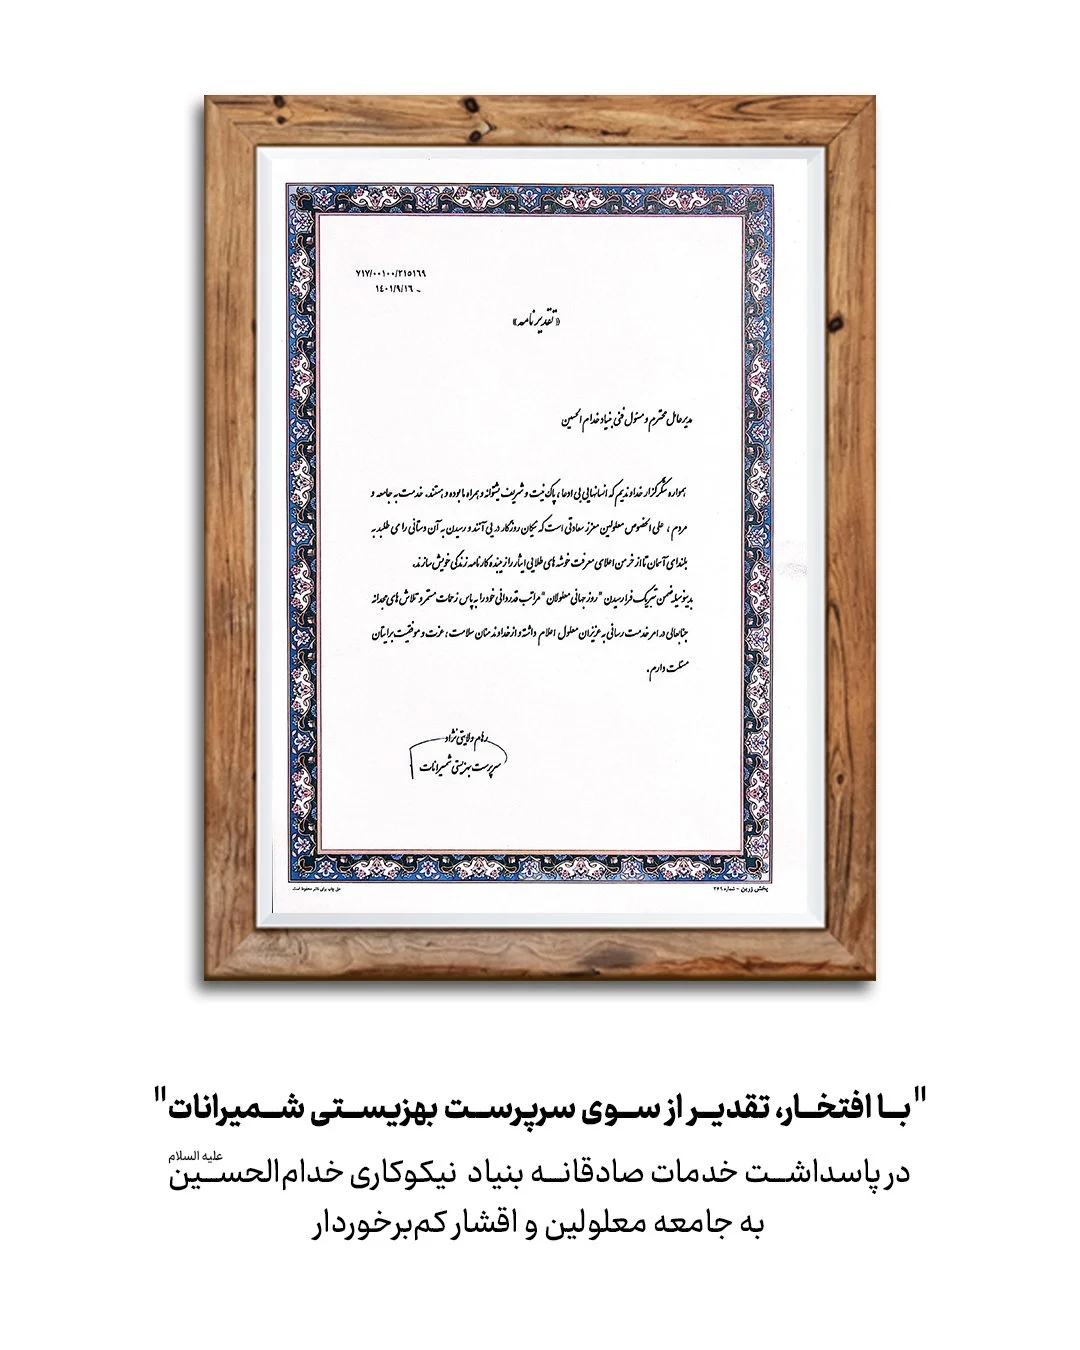 ۷۱۷/۰۰۱۰۰/۲۱۵۱۶۹
۱۴۰۱/۹/۱۶
«تقدیرنامه»
مدیرعامل محترم و مسئول فنی بنیاد خدام الحسین
همواره شکرگزار خداوندیم که انسانهایی بی ادعا ، پاک نیت و شریف پشتوانه و همراه ما بوده و هستند. خدمت به جامعه و
مردم ، علی الخصوص معلولین معزز سعادتی است که نیکان روزگار در پی آنند و رسیدن به آن دستانی را می طلبد به
بلندای آسمان تا از خرمن اعلای معرفت خوشه های طلایی ایثار را زیبنده کارنامه زندگی خویش سازند.
بدینوسیله ضمن تبریک فرا رسیدن "روز جهانی معلولان" مراتب قدردانی خود را به پاس زحمات مستمر و تلاش های مجدانه
جنابعالی در امر خدمت رسانی به عزیزان معلول اعلام داشته و از خداوند منان سلامت ، عزت و موفقیت برایتان
مسئلت دارم.
رهام ولایتی نژاد
سرپرست بهزیستی شمیرانات
پخش زرین - شماره ۲۶۹
حق چاپ برای ناشر محفوظ است
"با افتخار، تقدیر از سوی سرپرست بهزیستی شمیرانات"
در پاسداشت خدمات صادقانه بنیاد نیکوکاری خدام‌الحسین علیه السلام
به جامعه معلولین و اقشار کم‌برخوردار